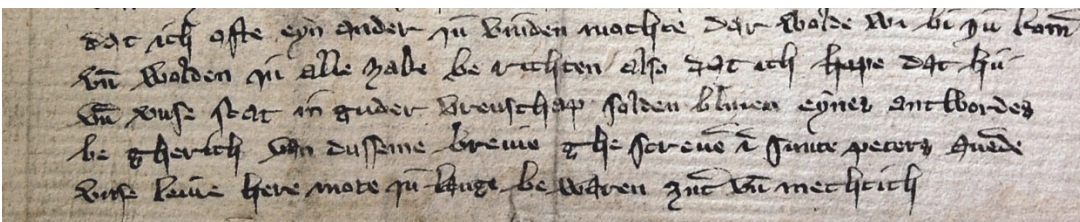 dat ich ofte eyn ander ju vinden mochte dar wolde wi bi ju kom̄
vn̄ wolden ju alle zake be richten also dat ich hape dat hir
vn̄ vnse stat in guder vrenschap solden bliuen eynes antwordes
be gherich van dusseme breiue Ghe screuē ī sunte peters auēde
vnse leiue here mote ju lange be waren zūt vn̄ mechtich